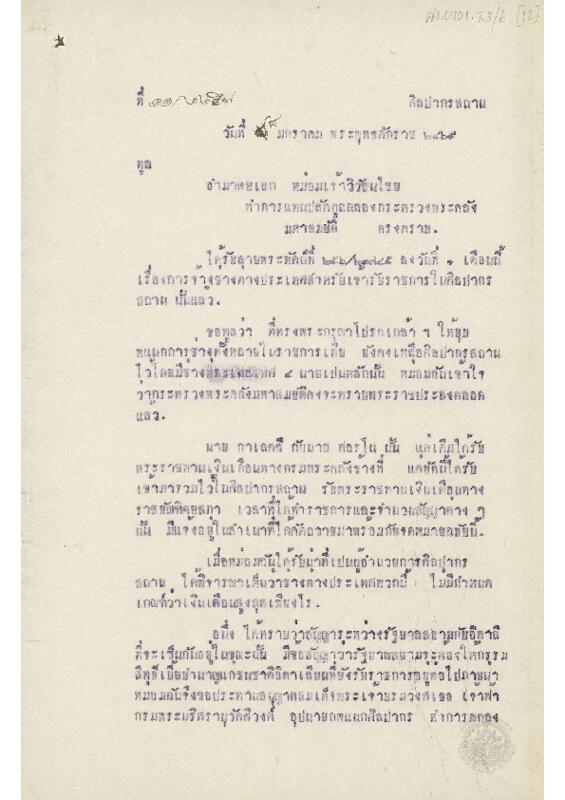 ศธ.0701.23/6 [12]
ที่ ๑๑/
ศิลปากรสถาน
วันที่ มกราคม พระพุทธศักราช ๒๔๖๙
ทูล
อำมาตยเอก หม่อมเจ้าวิวัฒนไชย
ทำการแทนปลัดทูลฉลองกระทรวงพระคลัง
มหาสมบัติ ทรงทราบ.
ได้รับลายพระหัตถ์ที่ ลงวันที่ ๑ เดือนนี้
เรื่องการจ้างช่างต่างประเทศสำหรับเข้ารับราชการในศิลปากร
สถาน นั้นแล้ว.
ขอทูลว่า ที่ทรงพระกรุณาโปรดเกล้า ฯ ให้ยุบ
แผนกการช่างทั้งหลายในราชการเสีย ยังคงเหลือศิลปากรสถาน
ไว้โดยมีช่างต่างประเทศ ๔ นายเป็นหลักนั้น หม่อมฉันเข้าใจ
ว่ากระทรวงพระคลังมหาสมบัติคงจะทราบพระราชประสงค์ตลอด
แล้ว.
นาย กาเลตตี กับนาย ฟอร์โน นั้น แต่เดิมได้รับ
พระราชทานเงินเดือนทางกรมพระคลังข้างที่ แต่บัดนี้ได้รับ
เข้ามารวมไว้ในศิลปากรสถาน รับพระราชทานเงินเดือนทาง
ราชบัณฑิตยสภา เวลาที่ได้ทำราชการและจำนวนสัญญาต่าง ๆ
นั้น มีแจ้งอยู่ในสำเนาที่ได้คัดถวายมาพร้อมกับจดหมายฉบับนี้.
เมื่อหม่อมฉันได้รับน่าที่เป็นผู้อำนวยการศิลปากร
สถาน ได้พิจารณาเห็นว่าช่างต่างประเทศพวกนี้ ไม่มีกำหนด
เกณฑ์ว่าเงินเดือนสูงสุดเพียงไร.
อนึ่ง ได้ทราบว่าสัญญาระหว่างรัฐบาลสยามกับอิตาลี
ที่จะเซ็นกันอยู่ในขณะนั้น มีข้อสัญญาว่ารัฐบาลสยามจะต้องให้กรรม
สิทธิ์เบี้ยบำนาญแก่ชนชาติอิตาเลียนที่ยังรับราชการอยู่ต่อไปภายน่า
หม่อมฉันจึงขอประทานอนุญาตสมเด็จพระเจ้าบรมวงศ์เธอ เจ้าฟ้า
กรมพระนริศรานุวัดติวงศ์ อุปนายกแผนกศิลปากร ทำการตกลง